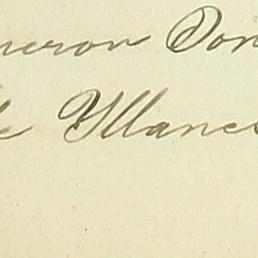 neron Don
e Yllanes